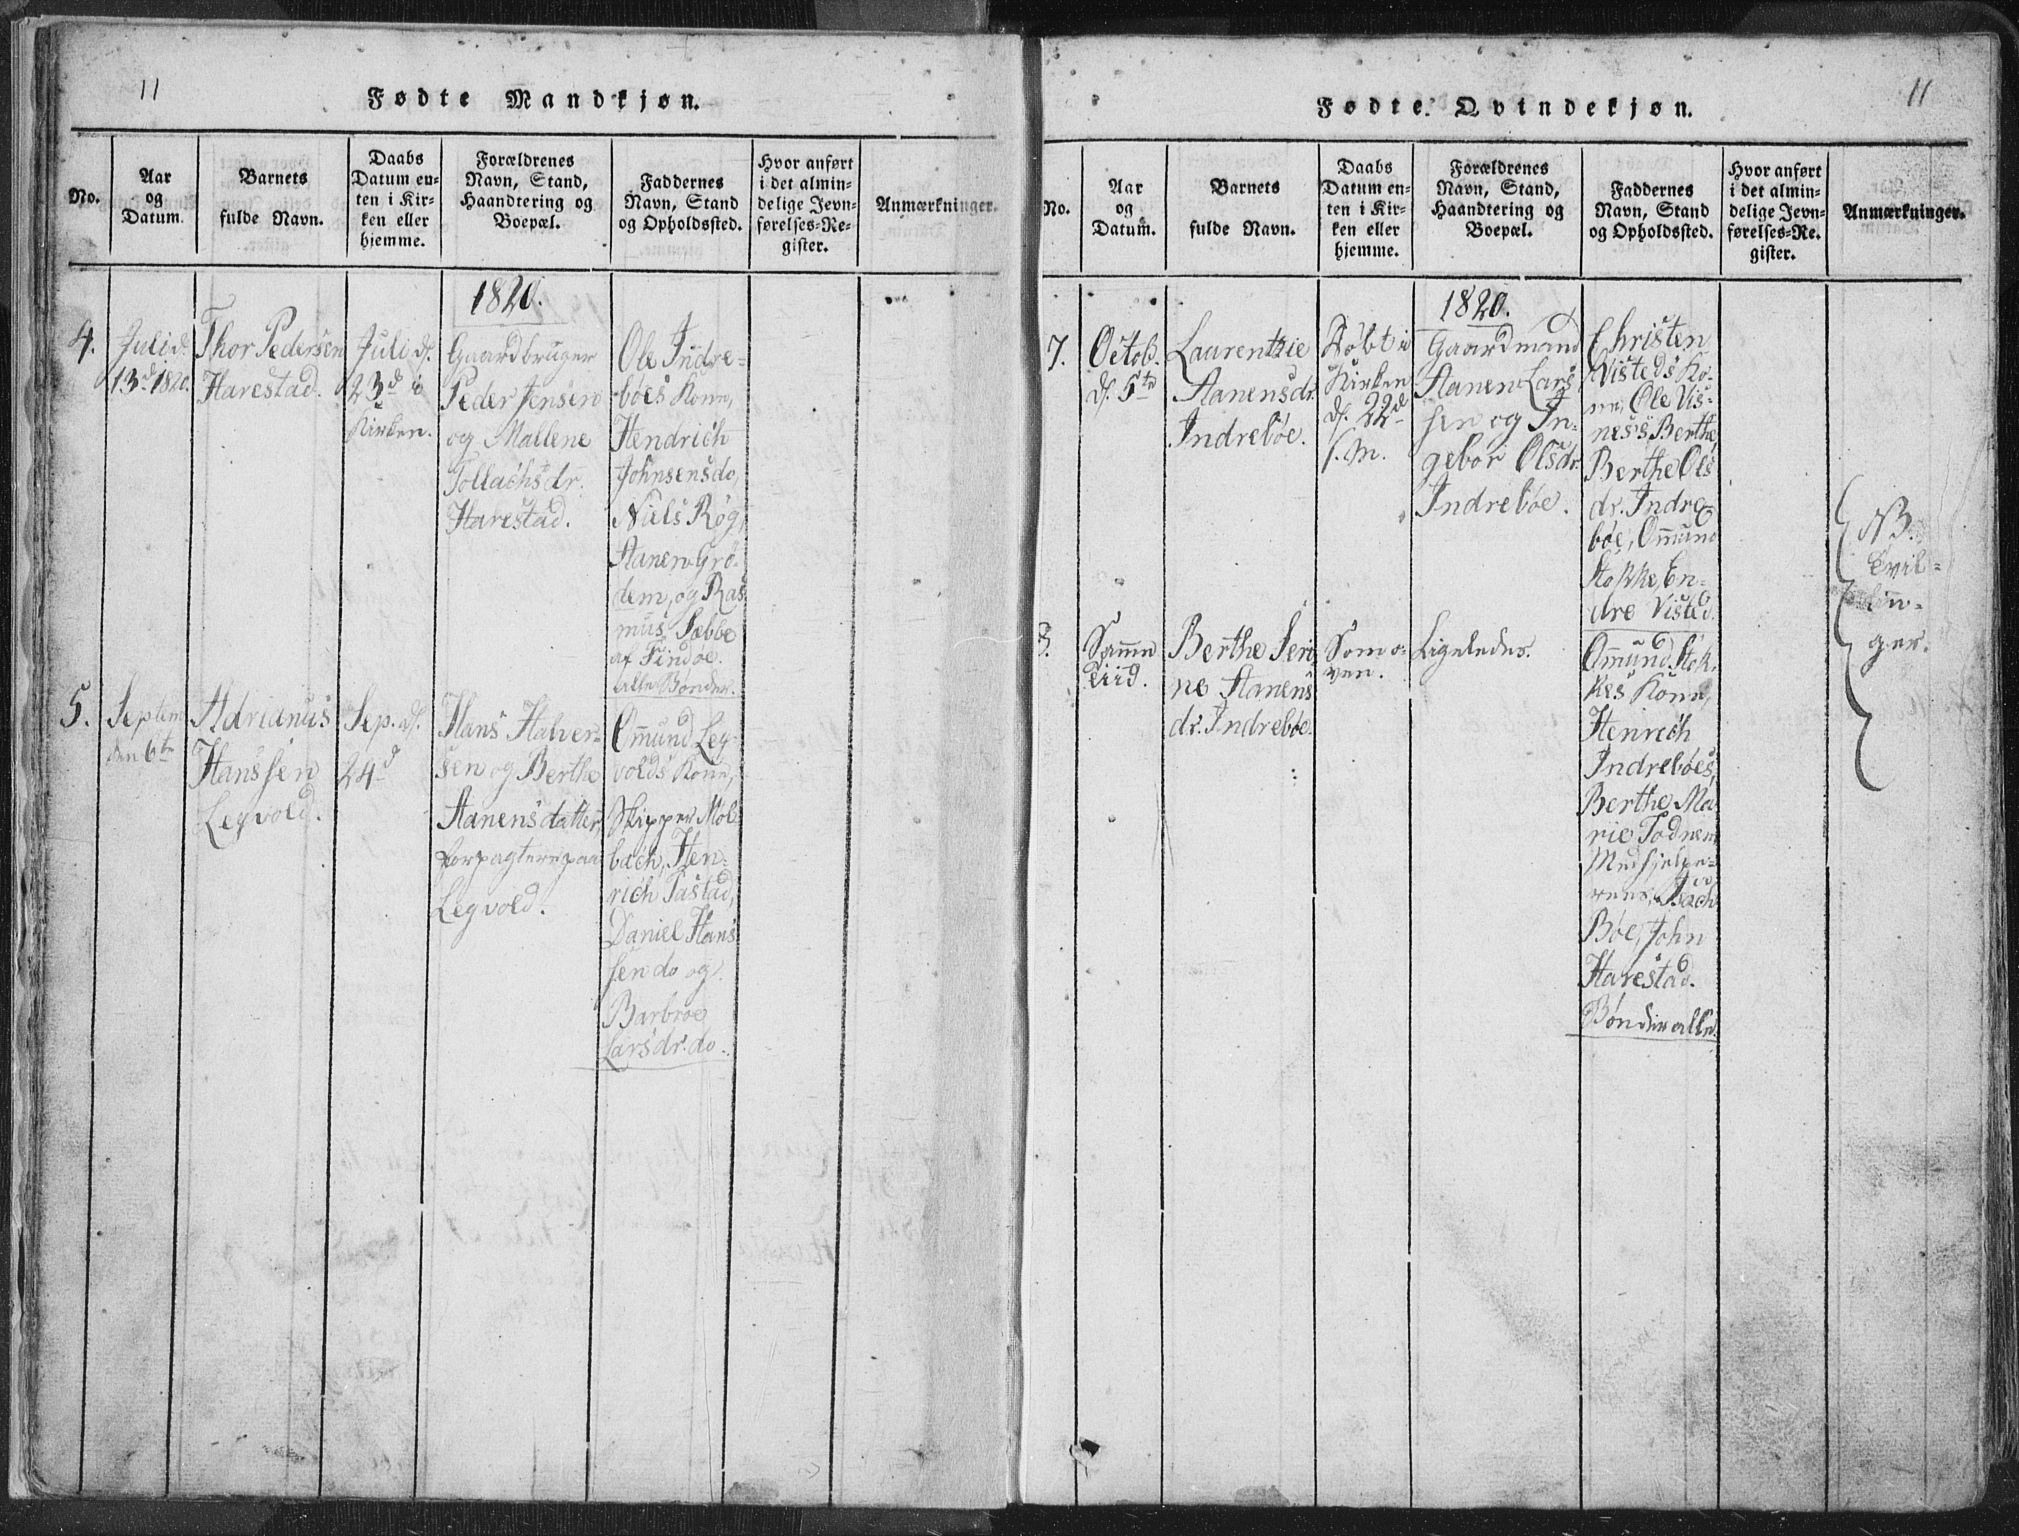 11
Fødte Mandkjøn.
No.
Aar
og
Datum.
Barnets
fulde Navn.
Daabs
Datum en-
ten i Kir-
ken eller
hjemme.
Forældrenes
Navn, Stand,
Haandtering og
Boepæl.
Faddernes
Navn, Stand
og Opholdssted.
Hvor anført
i det almin-
delige Jevn-
førelses-Re-
gister.
Anmærkninger.
1820.
4.
Juli d.
13d 1820.
Thor Pedersen
Harestad.
Juli d.
23d i
Kirken.
Gaardbruger
Peder Jensen
og Mallene
Tollachsdr.
Harestad.
Ole Indre-
bøes Kone,
Hendrich
Johnsens do,
Niels Røg,
Aanen Grø-
dem, og Ras
mus Sæbbe
af Findøe.
alle Bønder.
5.
Septem
den 6te
Adrianus
Hanssen
Legvold.
Sep. d.
24d
Hans Halver-
sen og Berthe
Aanensdatter,
Forpagtere paa
Legvold.
Ommund Leg-
volds Kone,
Skipper Mol-
bach, Hen-
rich Tastad,
Daniel Hans
sen do og
Barbroe
Larsdr. do.
11
Fødte Qvindekjøn.
No.
Aar
og
Datum.
Barnets
fulde Navn.
Daabs
Datum en-
ten i Kir-
ken eller
hjemme.
Forældrenes
Navn, Stand,
Haandtering og
Boepæl.
Faddernes
Navn, Stand
og Opholdssted.
Hvor anført
i det almin-
delige Jevn-
førelses-Re-
gister.
Anmærkninger.
1820.
7.
Octob.
d. 5te
Laurentzie
Aanensdr.
Indrebøe.
Døbt i
Kirken
d. 22d
s. M.
Gaardmand
Aanen Lars
sen og In-
gebor Olsdr.
Indrebøe.
Christen
Visteds Ko-
ne, Ole Vis-
nes's Berthe
Berthe Ols
dr. Indre-
bøe, Ommund
Stokke, En-
dre Visted.
NB.
Tvil-
lin-
ger.
8.
Samme
Tiid.
Berthe Seri
ne Aanens
dr. Indrebøe.
Som o-
ven.
Ligeledes.
Ommund Stok-
kes Kone,
Henrich
Indrebøes,
Berthe Ma-
rie Todnem
Medhjelpe-
rens,
Bøe, John
Harestad.
Bønder alle.